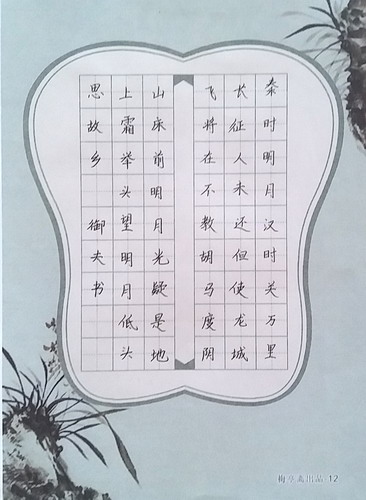 秦时明月汉时关万里
长征人未还但使龙城
飞将在不教胡马度阴
山床前明月光疑是地
上霜举头望明月低头
思故乡 御夫书
出品·12